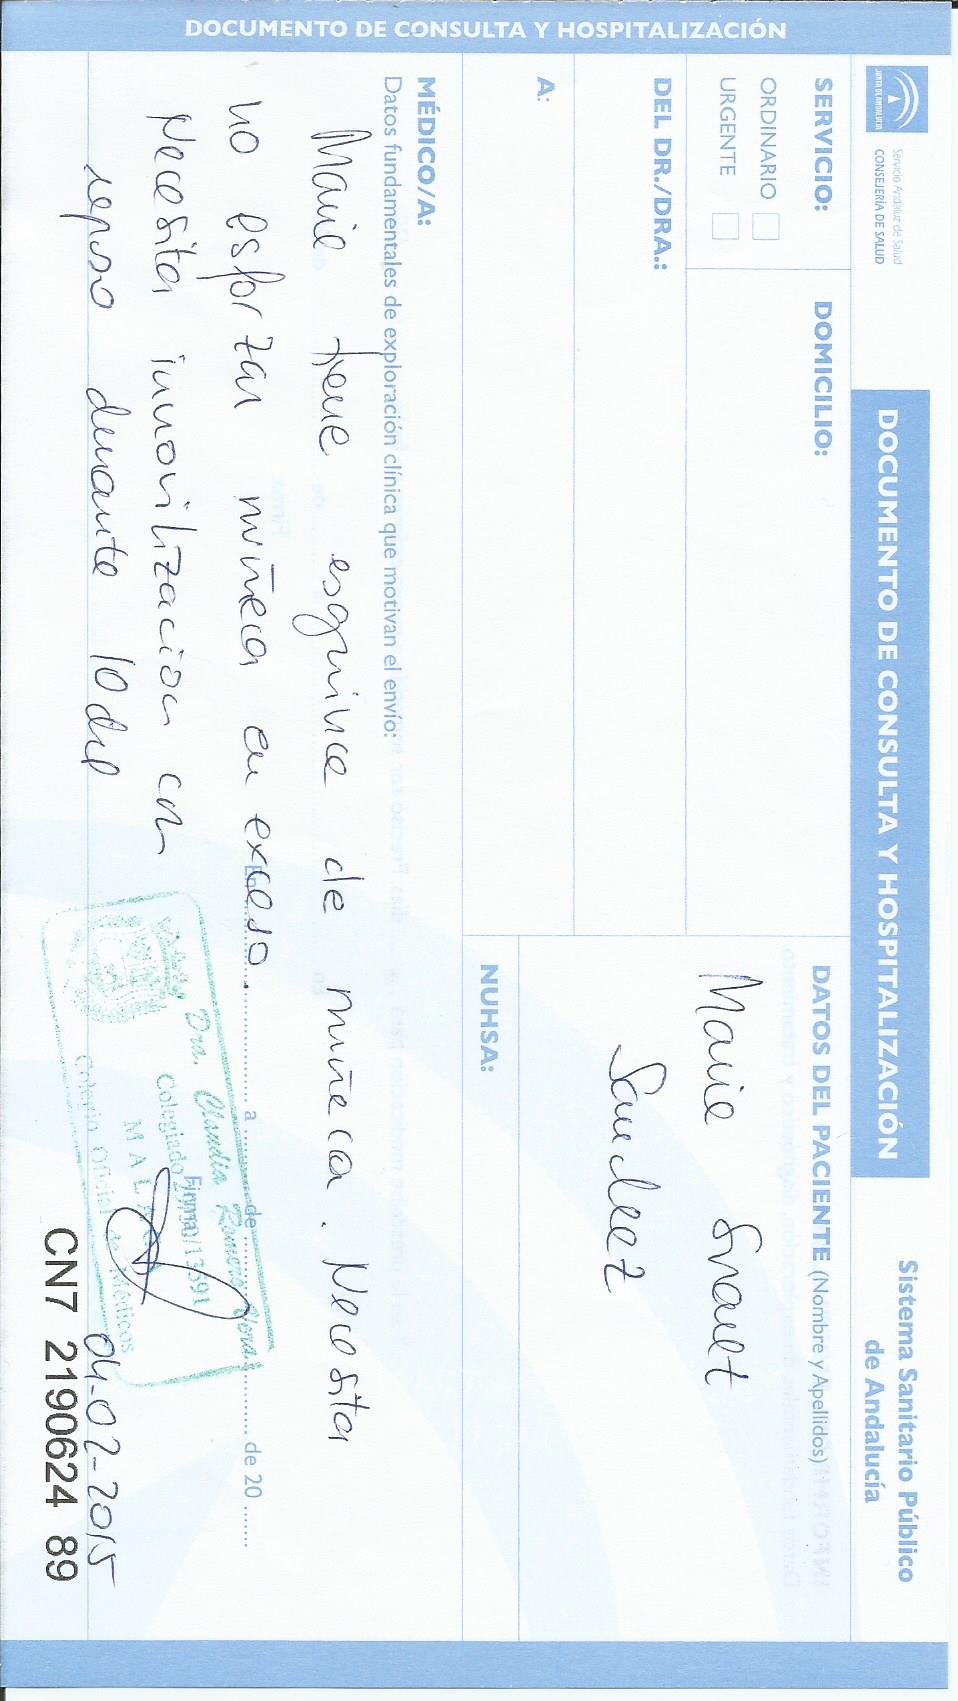 DOCUMENTO DE CONSULTA Y HOSPITALIZACIÓN
JUNTA DE ANDALUCIA
Servicio Andaluz de Salud
CONSEJERÍA DE SALUD
DOCUMENTO DE CONSULTA Y HOSPITALIZACIÓN
Sistema Sanitario Público
de Andalucía
SERVICIO:
ORDINARIO
URGENTE
DOMICILIO:
DATOS DEL PACIENTE (Nombre y Apellidos)
Marie
Sanchez
DEL DR./DRA.:
A:
NUHSA:
MÉDICO/A:
Datos fundamentales de exploración clínica que motivan el envío:
Marie tiene esguince de muñeca. Necesita
no esforzar muñeca en exceso.
Necesita inmovilización con
reposo durante 10 del
a de de 20
Firma
Dra. Claudia Romero
Colegiado 13591
MALAGA
Colegio Oficial de Médicos
04-02-2015
CN7 2190624 89